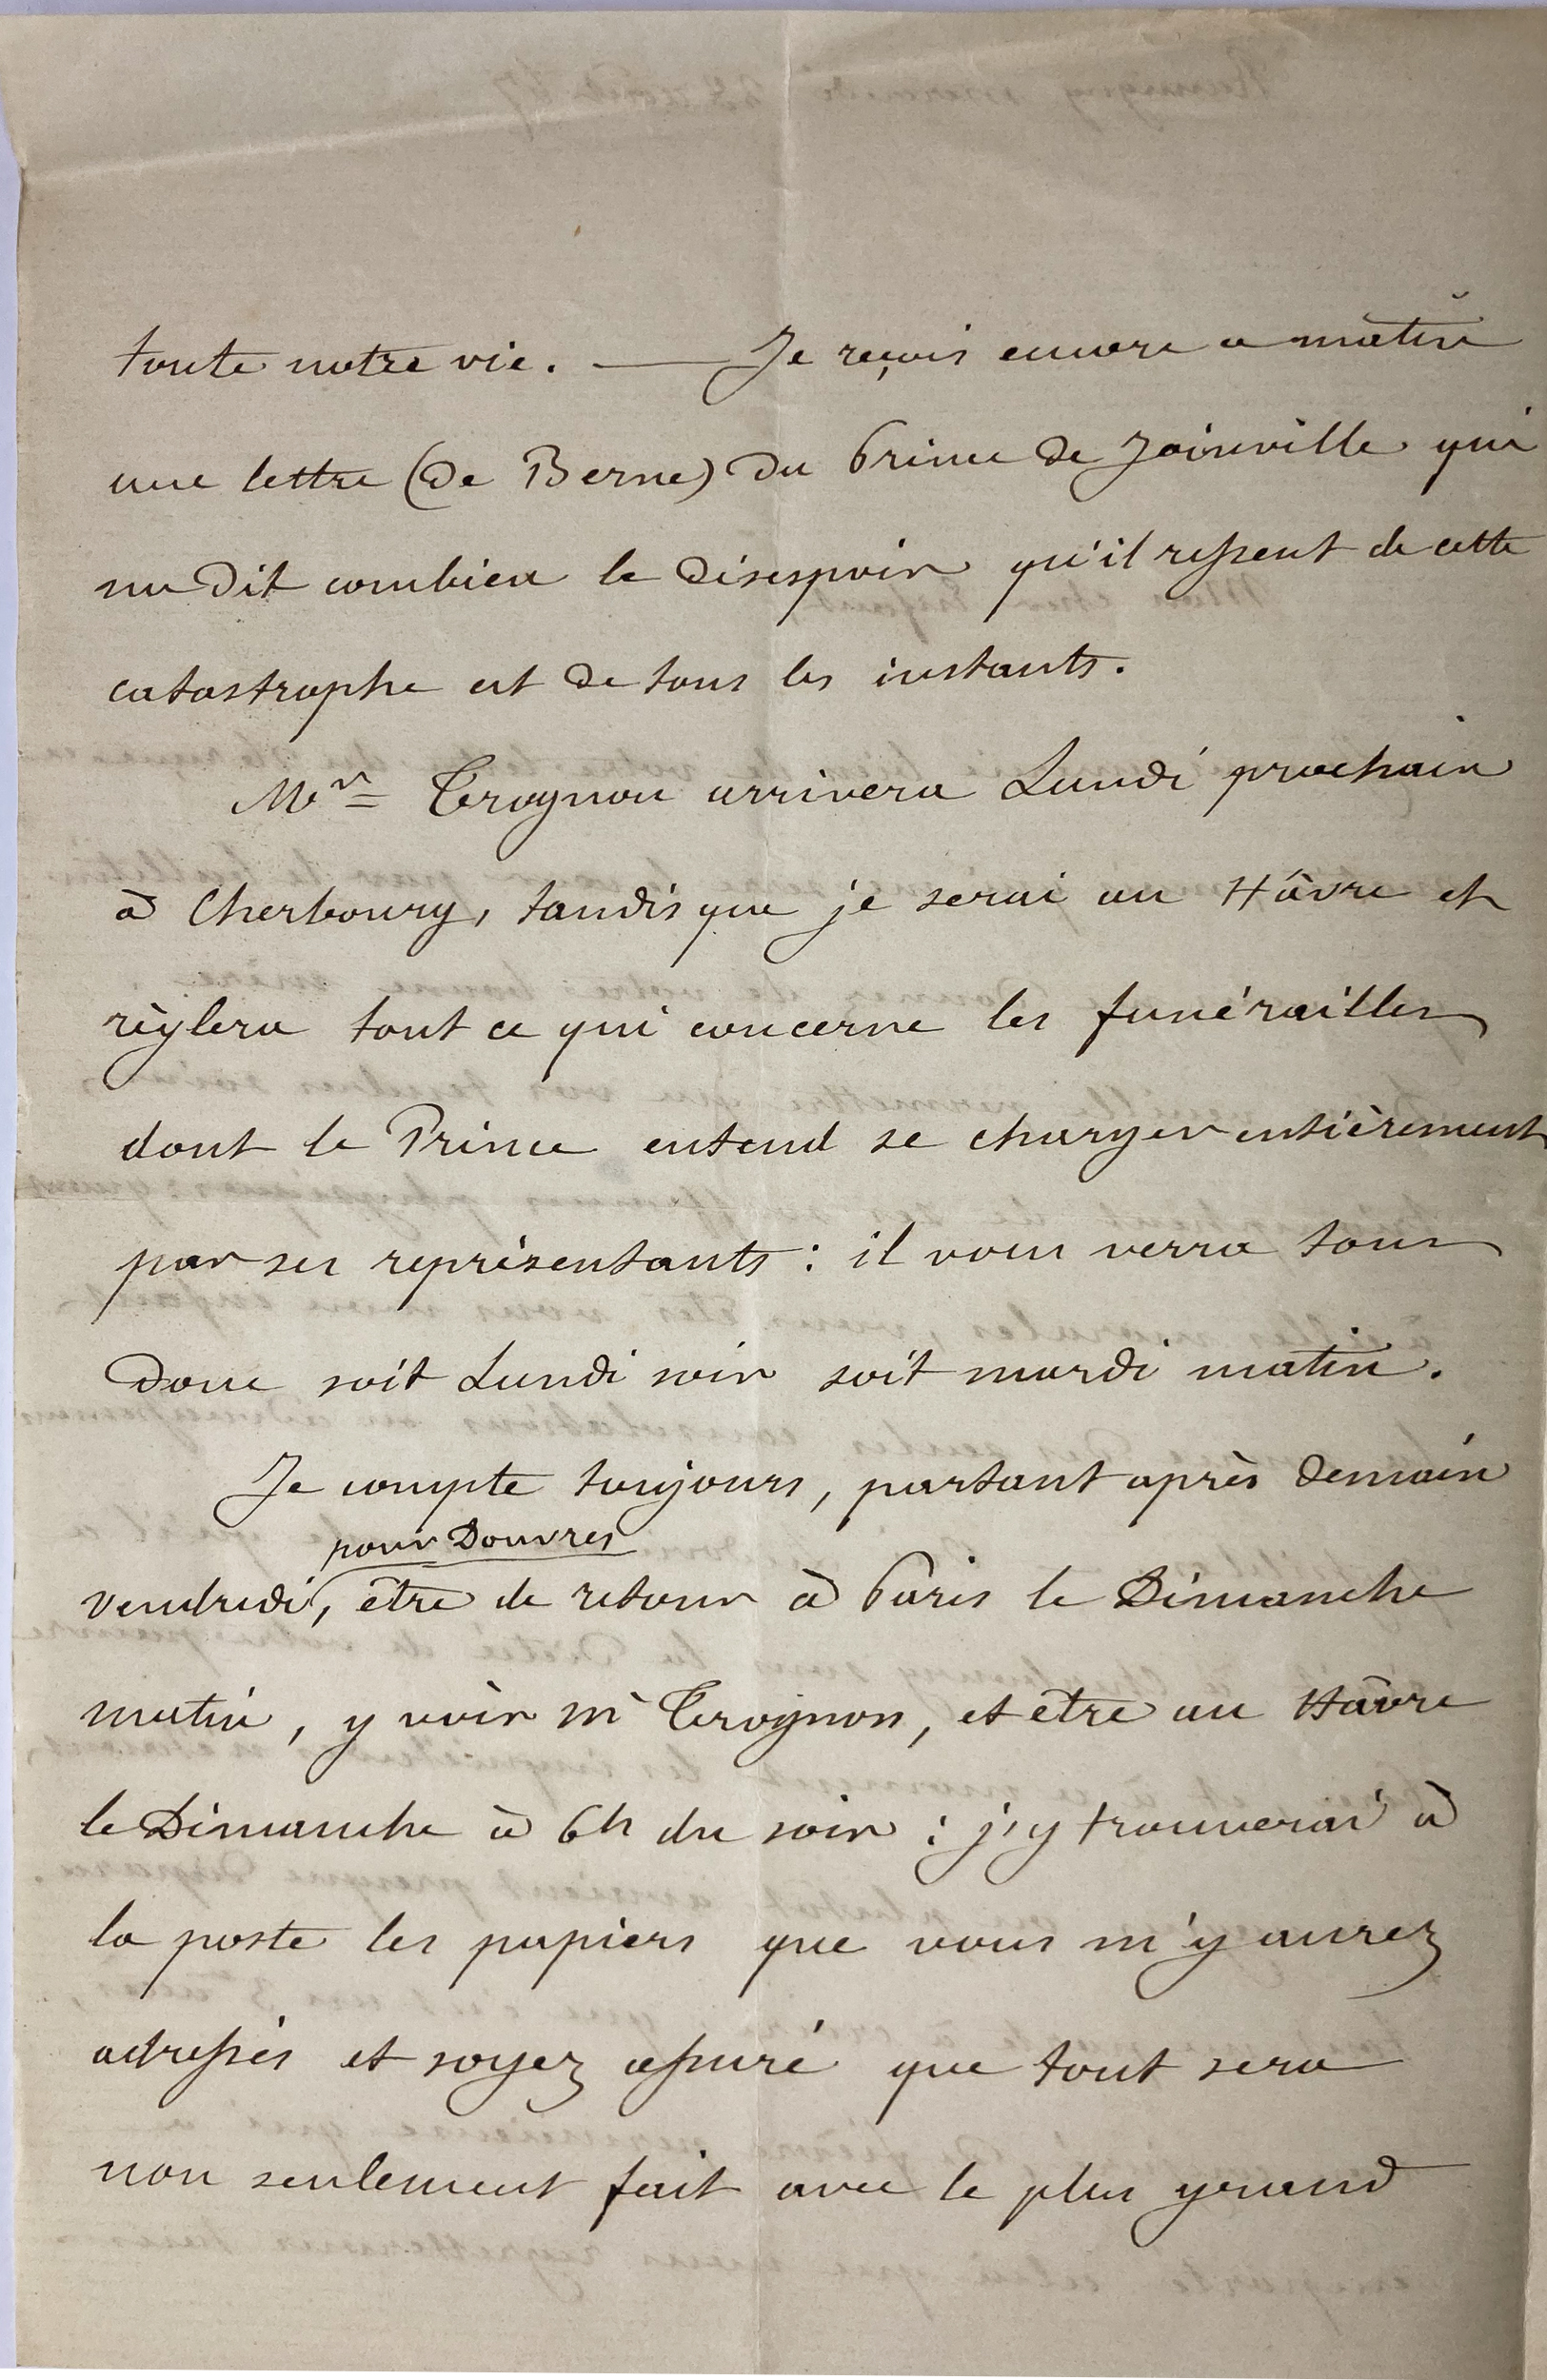 toute notre vie. — Je reçois encore ce matin
une lettre (de Berne) du Prince de Joinville qui
me dit combien le désespoir qu'il ressent de cette
catastrophe est de tous les instants.
Mr Trognon arrivera Lundi prochain
à Cherbourg, tandis que je serai au Hâvre et
règlera tout ce qui concerne les funérailles
dont le Prince entend se charger entièrement
par ses représentants : il vous verra tous
donc soit Lundi soir soit mardi matin.
Je compte toujours, partant après demain
pour Douvres
vendredi, être de retour à Paris le Dimanche
matin, y voir mr Trognon, et être au Hâvre
le Dimanche à 6h du soir : j'y trouverai à
la poste les papiers que vous m'y aurez
adressés et soyez assuré que tout sera
non seulement fait avec le plus grand